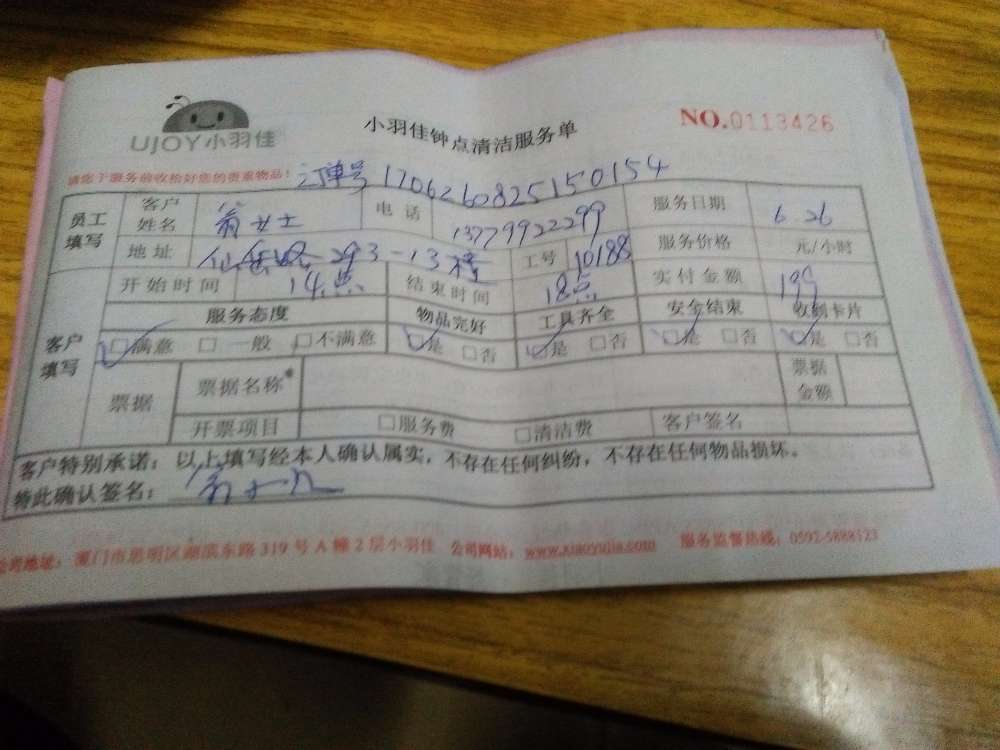 UJOY小羽佳
小羽佳钟点清洁服务单
NO.0113426
请您于服务前收检好您的贵重物品!
订单号 1706260825150154
员工填写 客户姓名 翁女士 电话 13779922299 服务日期 6 26
地址 293-13楼 工号 10188 服务价格 元/小时
开始时间 14点 结束时间 18点 实付金额 199
客户填写 服务态度 物品完好 工具齐全 安全结束 收到卡片
☑满意 □一般 □不满意 ☑是 □否 ☑是 □否 ☑是 □否 ☑是 □否
票据 票据名称 票据金额
开票项目 □服务费 □清洁费 客户签名
客户特别承诺：以上填写经本人确认属实，不存在任何纠纷，不存在任何物品损坏。
特此确认签名：
公司地址：厦门市思明区湖滨东路319号A幢2层小羽佳 公司网站：www.xiaoyujia.com 服务监督热线：0592-5888123